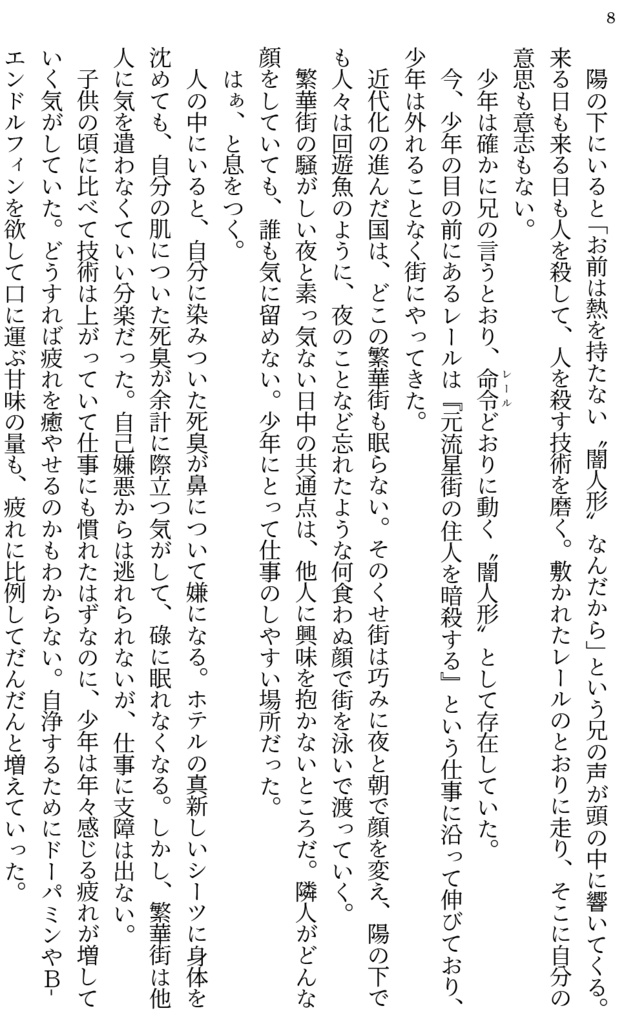 8
陽の下にいると「お前は熱を持たない〝闇人形〟なんだから」という兄の声が頭の中に響いてくる。
来る日も来る日も人を殺して、人を殺す技術を磨く。敷かれたレールのとおりに走り、そこに自分の
意思も意志もない。
少年は確かに兄の言うとおり、命令どおりに動く〝闇人形〟として存在していた。
レール
今、少年の目の前にあるレールは『元流星街の住人を暗殺する』という仕事に沿って伸びており、
少年は外れることなく街にやってきた。
近代化の進んだ国は、どこの繁華街も眠らない。そのくせ街は巧みに夜と朝で顔を変え、陽の下で
も人々は回遊魚のように、夜のことなど忘れたような何食わぬ顔で街を泳いで渡っていく。
繁華街の騒がしい夜と素っ気ない日中の共通点は、他人に興味を抱かないところだ。隣人がどんな
顔をしていても、誰も気に留めない。少年にとって仕事のしやすい場所だった。
はぁ、と息をつく。
人の中にいると、自分に染みついた死臭が鼻について嫌になる。ホテルの真新しいシーツに身体を
沈めても、自分の肌についた死臭が余計に際立つ気がして、碌に眠れなくなる。しかし、繁華街は他
人に気を遣わなくていい分楽だった。自己嫌悪からは逃れられないが、仕事に支障は出ない。
子供の頃に比べて技術は上がっていて仕事にも慣れたはずなのに、少年は年々感じる疲れが増して
いく気がしていた。どうすれば疲れを癒やせるのかもわからない。自浄するためにドーパミンやB-
エンドルフィンを欲して口に運ぶ甘味の量も、疲れに比例してだんだんと増えていった。